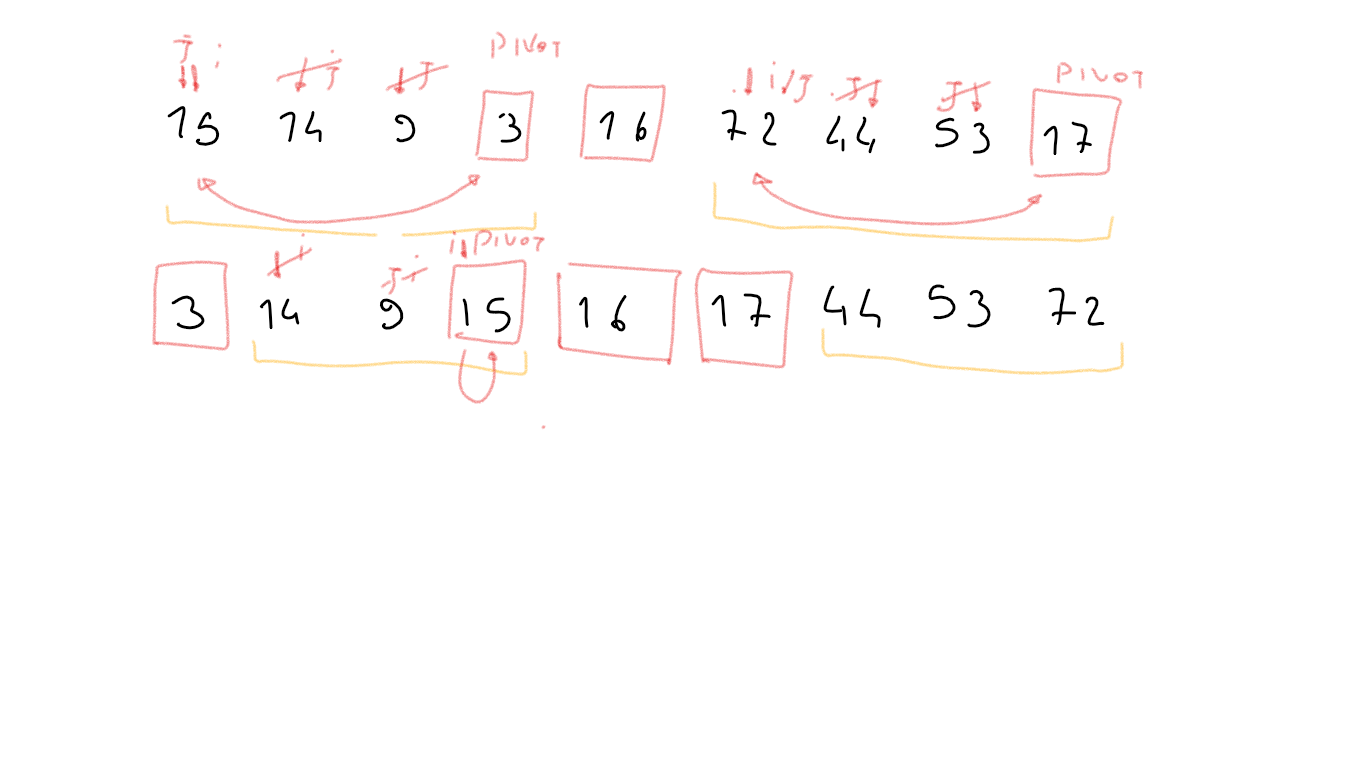 J i i J J PIVOT i/J J J PIVOT
15 14 9 3 16 72 44 53 17
i J i i PIVOT
3 14 9 15 16 17 44 53 72